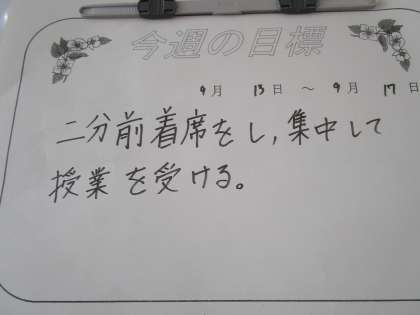 今週の目標
9月 13日 ～ 9月 17日
二分前着席をし,集中して
授業を受ける。